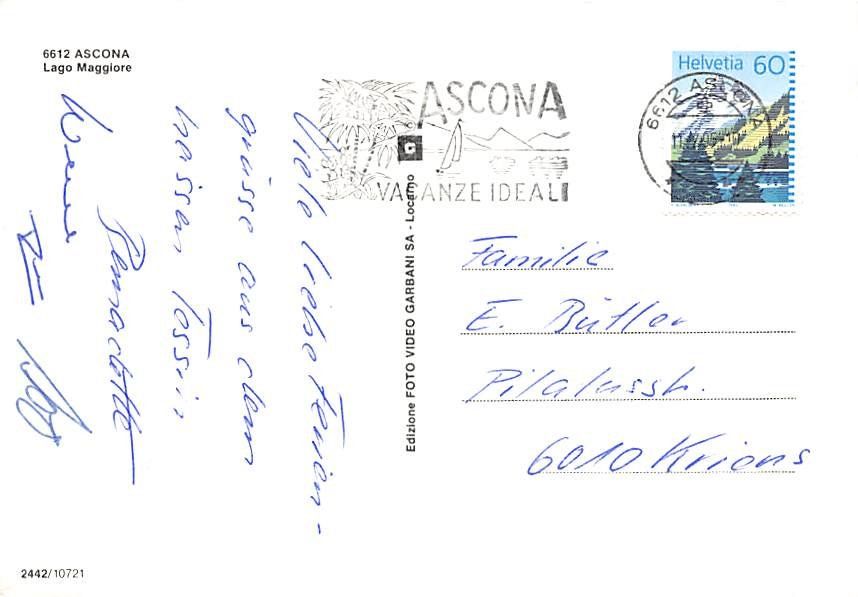 6612 ASCONA
Lago Maggiore
ASCONA
VACANZE IDEALI
6612 ASCONA
Helvetia 60
Viele liebe Ferien-
grüsse aus dem
heissen Tessin
Bernadette
Edizione FOTO VIDEO GARBANI SA - Locarno
G
Familie
E. Bütler
Pilatusstr.
6010 Kriens
2442/10721